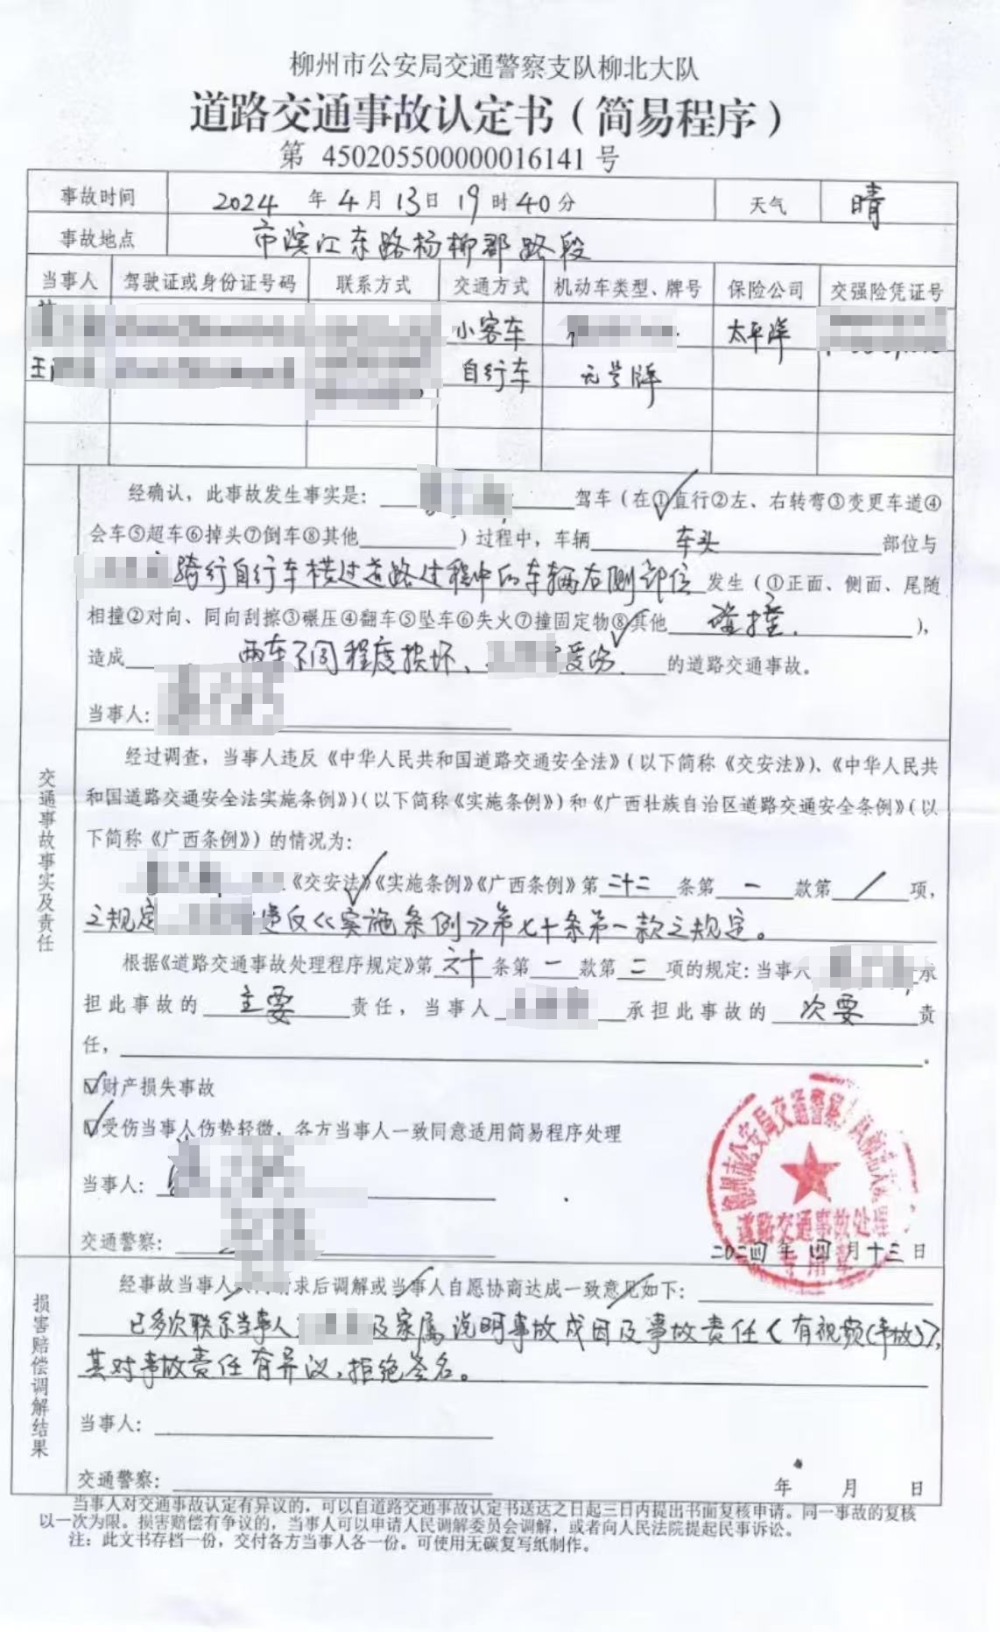 柳州市公安局交通警察支队柳北大队
道路交通事故认定书(简易程序)
第 450205500000016141 号
事故时间 2024 年 4 月 13 日 19 时 40 分 天气 晴
事故地点 市滨江东路杨柳郡路段
当事人 驾驶证或身份证号码 联系方式 交通方式 机动车类型、牌号 保险公司 交强险凭证号
小客车 太平洋
王 自行车 无号牌
经确认,此事故发生事实是: 驾车(在①直行②左、右转弯③变更车道④
会车⑤超车⑥掉头⑦倒车⑧其他 )过程中,车辆 车头 部位与
骑行自行车横过道路过程中的车辆右侧部位 发生(①正面、侧面、尾随
相撞②对向、同向刮擦③碾压④翻车⑤坠车⑥失火⑦撞固定物⑧其他 碰撞. ),
造成 两车不同程度损坏、 受伤. 的道路交通事故。
当事人:
交通事故事实及责任
经过调查,当事人违反《中华人民共和国道路交通安全法》(以下简称《交安法》)、《中华人民共
和国道路交通安全法实施条例》)(以下简称《实施条例》)和《广西壮族自治区道路交通安全条例》(以
下简称《广西条例》)的情况为:
《交安法》《实施条例》《广西条例》第 二十二 条第 一 款第 / 项,
之规定 违反《实施条例》第七十条第一款之规定。
根据《道路交通事故处理程序规定》第 六十 条第 一 款第 二 项的规定:当事人 承
担此事故的 主要 责任,当事人 承担此事故的 次要 责
任, 。
☑财产损失事故
☑受伤当事人伤势轻微,各方当事人一致同意适用简易程序处理
当事人:
交通警察:
二〇二四年 四 月 十三 日
道路交通事故处理
专用章
损害赔偿调解结果
经事故当事人 请求后调解或当事人自愿协商达成一致意见如下:
已多次联系当事人 及家属,说明事故成因及事故责任(有视频(事故)),
其对事故责任有异议,拒绝签名。
当事人:
交通警察: 年 月 日
当事人对交通事故认定有异议的,可以自道路交通事故认定书送达之日起三日内提出书面复核申请。同一事故的复核
以一次为限。损害赔偿有争议的,当事人可以申请人民调解委员会调解,或者向人民法院提起民事诉讼。
注:此文书存档一份,交付各方当事人各一份。可使用无碳复写纸制作。